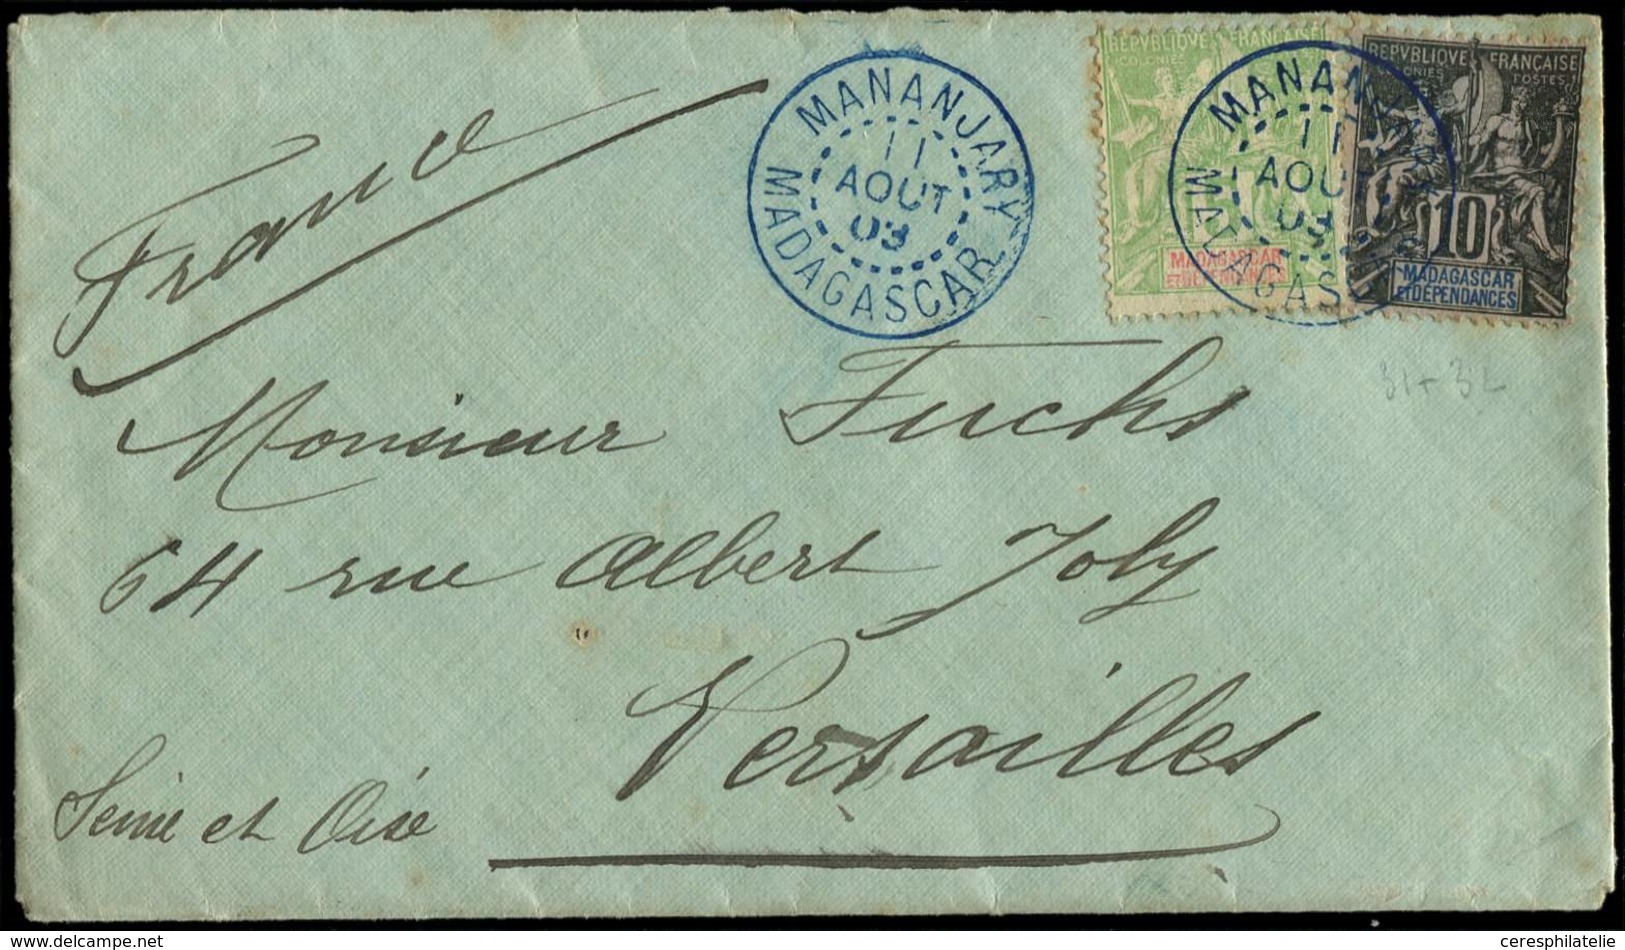 France
MANANJARY
11
AOUT
03
MADAGASCAR
REPVBLIQVE FRANÇAISE
COLONIES
MADAGASCAR
ET DÉPENDANCES
MANANJARY
11
AOUT
03
MADAGASCAR
REPVBLIQVE FRANÇAISE
COLONIES POSTES
10
MADAGASCAR
ET DÉPENDANCES
Monsieur Fuchs
64 rue Albert Joly
Versailles
Seine et Oise
© www.delcampe.net
ceresphilatelie